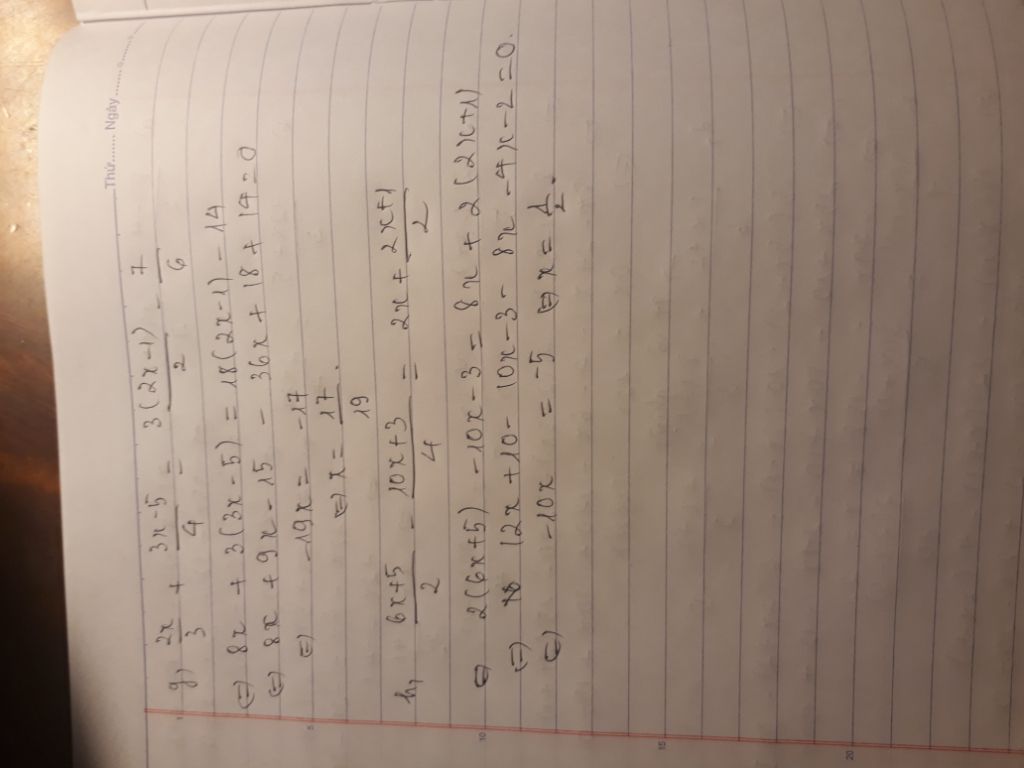 Thứ......... Ngày ............
g) 2x/3 + 3x-5/4 = 3(2x-1)/2 - 7/6
⇔ 8x + 3(3x-5) = 18(2x-1) - 14
⇔ 8x + 9x - 15 - 36x + 18 + 14 = 0
⇔ -19x = -17
⇔ x = 17/19.
h, 6x+5/2 - 10x+3/4 = 2x + 2x+1/2
⇔ 2(6x+5) - 10x - 3 = 8x + 2(2x+1)
⇔ 12x + 10 - 10x - 3 - 8x - 4x - 2 = 0.
⇔ -10x = -5 ⇔ x = 1/2.
5
10
15
20